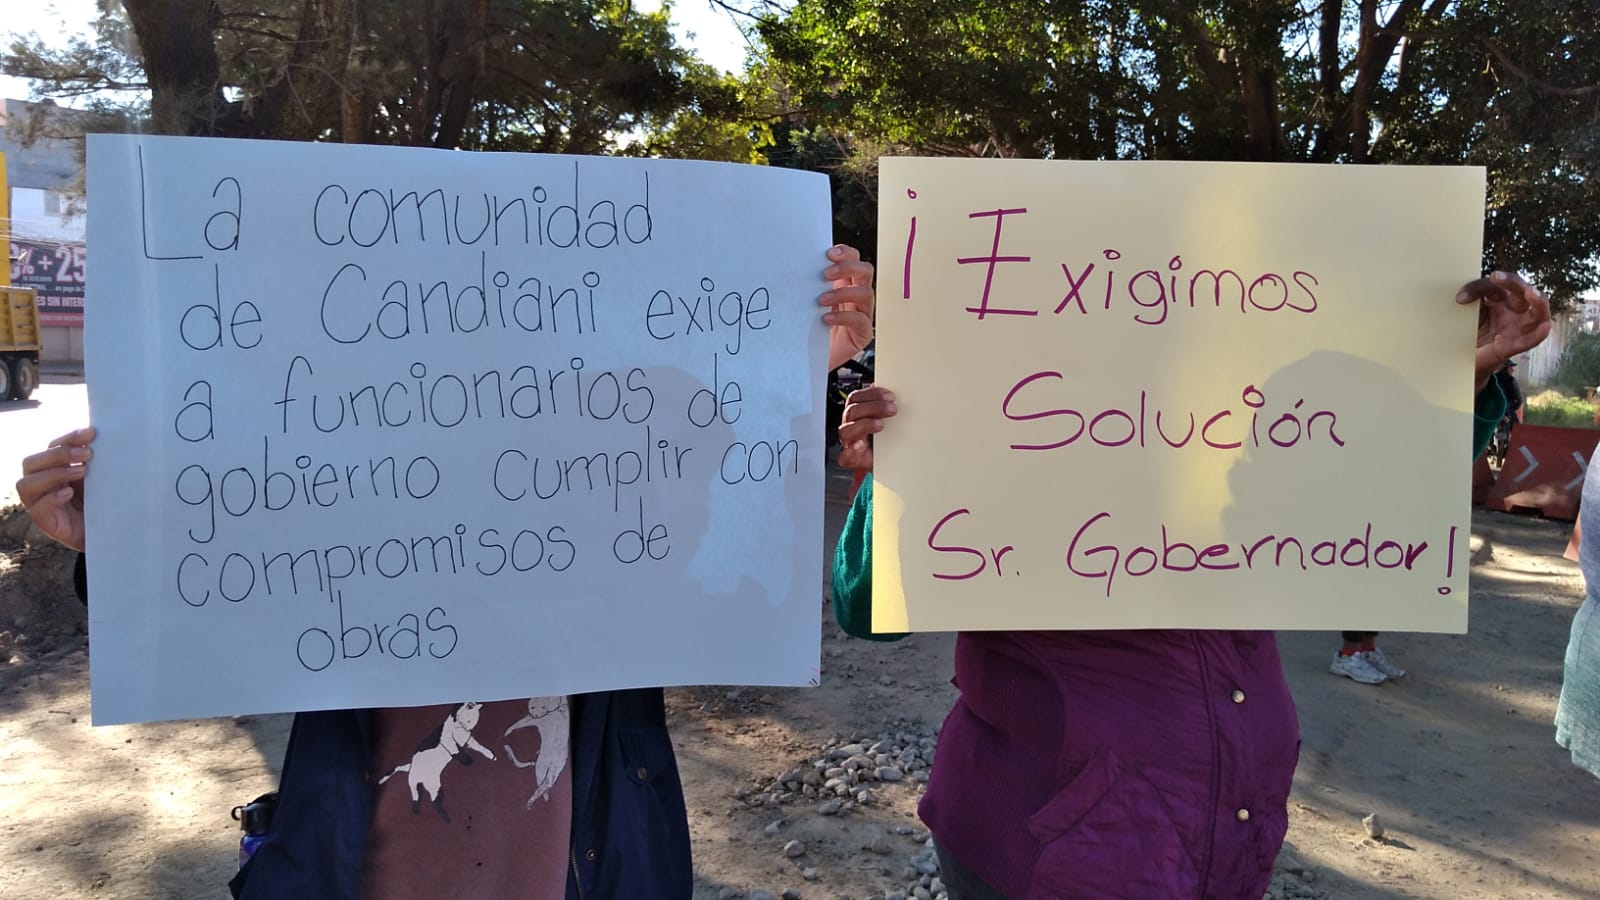 La comunidad
de Candiani exige
a funcionarios de
gobierno cumplir con
compromisos de
obras
¡Exigimos
Solución
Sr. Gobernador!
% + 25
ES SIN INTER